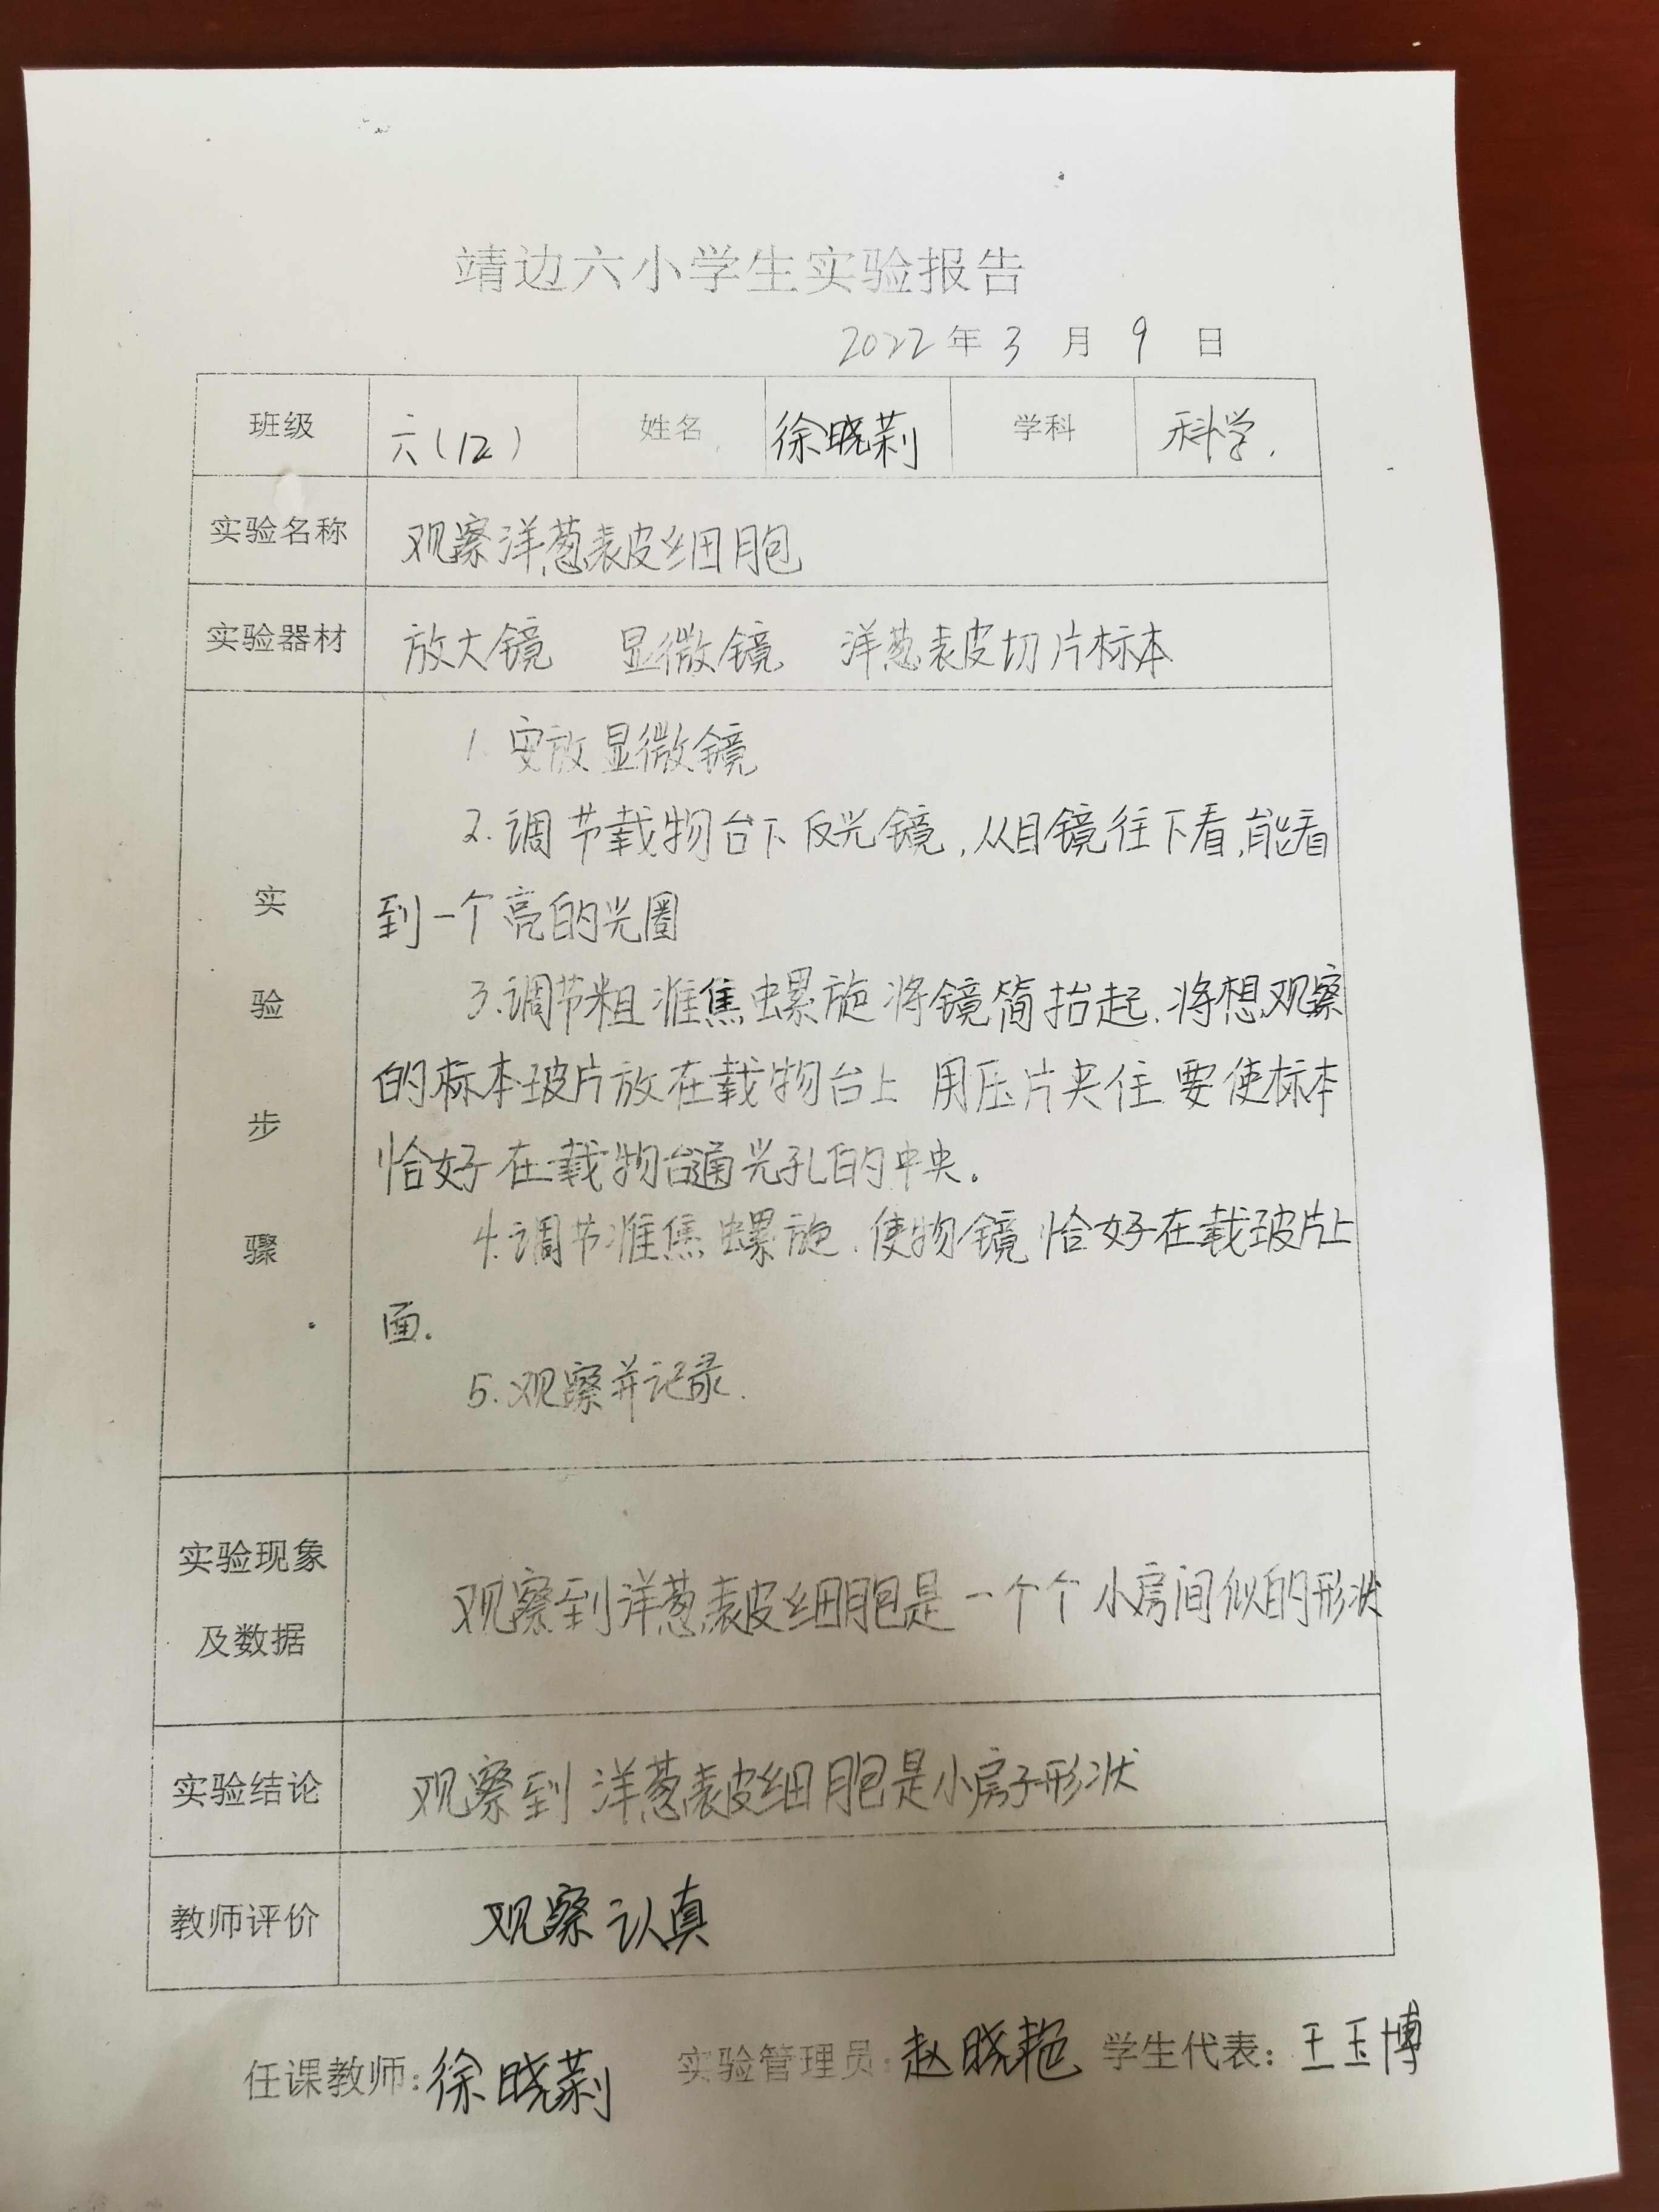 靖边六小学生实验报告
2022年3月9日
班级 六(12) 姓名 徐晓莉 学科 科学.
实验名称 观察洋葱表皮细胞
实验器材 放大镜 显微镜 洋葱表皮切片标本
实验步骤
1 安放显微镜
2.调节载物台下反光镜,从目镜往下看,能看
到一个亮的光圈
3.调节粗准焦螺旋将镜筒抬起.将想观察
的标本玻片放在载物台上 用压片夹住 要使标本
恰好在载物台通光孔的中央。
4.调节准焦螺旋.使物镜恰好在载玻片上
面.
5.观察并记录.
实验现象
及数据
观察到洋葱表皮细胞是一个个小房间似的形状
实验结论 观察到洋葱表皮细胞是小房子形状
教师评价 观察认真
任课教师:徐晓莉 实验管理员:赵晓艳 学生代表:王玉博